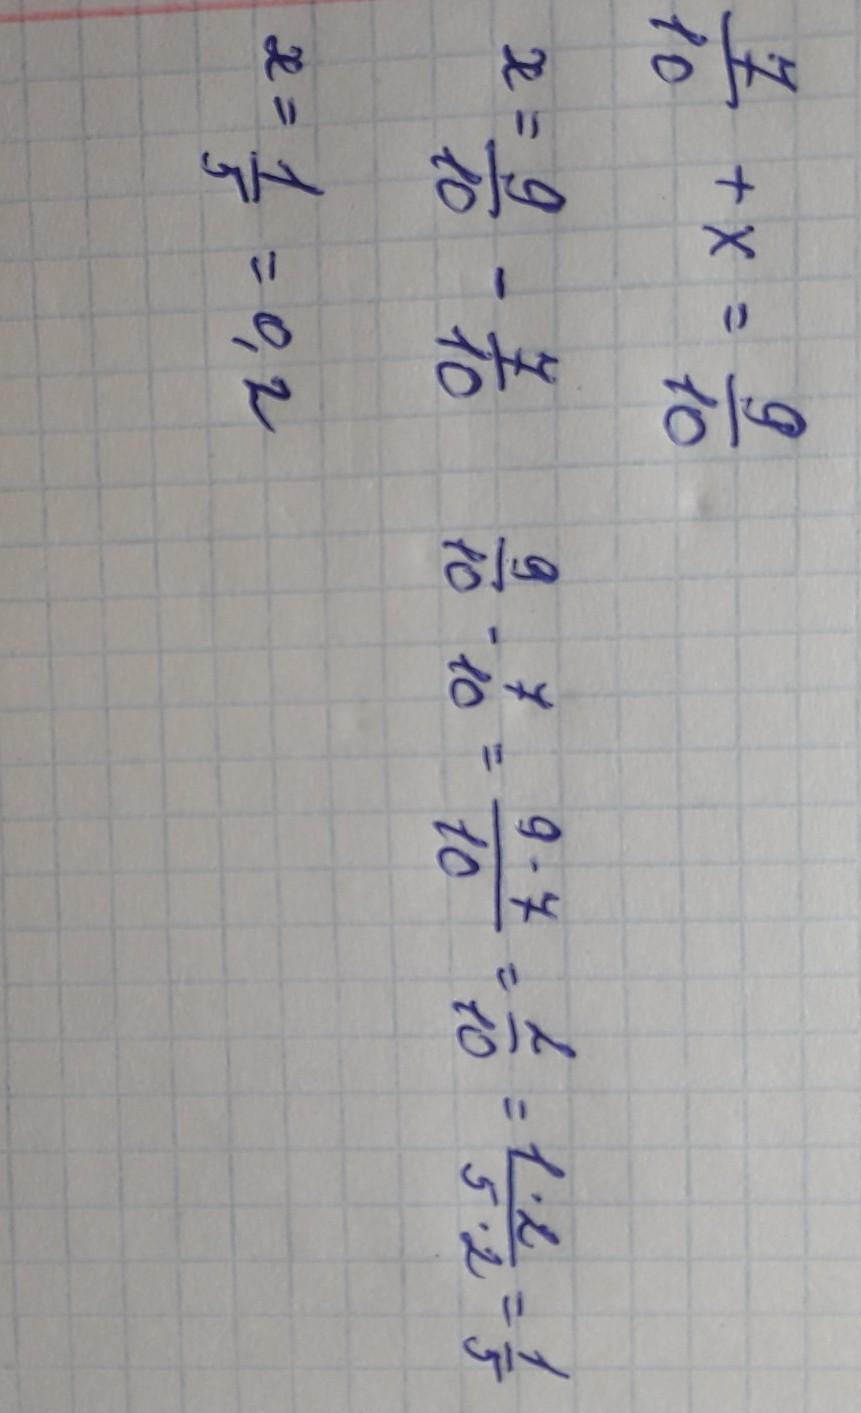 7/10 + x = 9/10
x = 9/10 - 7/10    9/10 - 7/10 = 9-7/10 = 2/10 = 1·2/5·2 = 1/5
x = 1/5 = 0,2